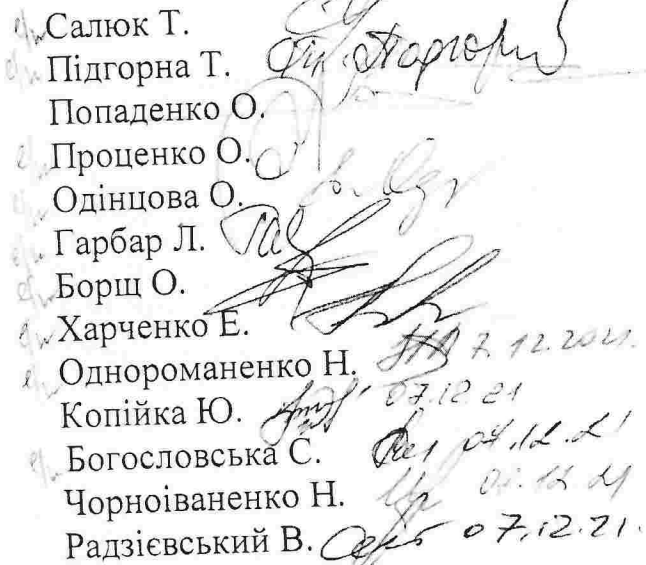 Салюк Т.
Підгорна Т.
Попаденко О.
Проценко О.
Одінцова О.
Гарбар Л.
Борщ О.
Харченко Е.
Однороманенко Н. 7.12.2021.
Копійка Ю. 07.12.21
Богословська С. 07.12.21
Чорноіваненко Н. 07.12.21
Радзієвський В. 07.12.21.